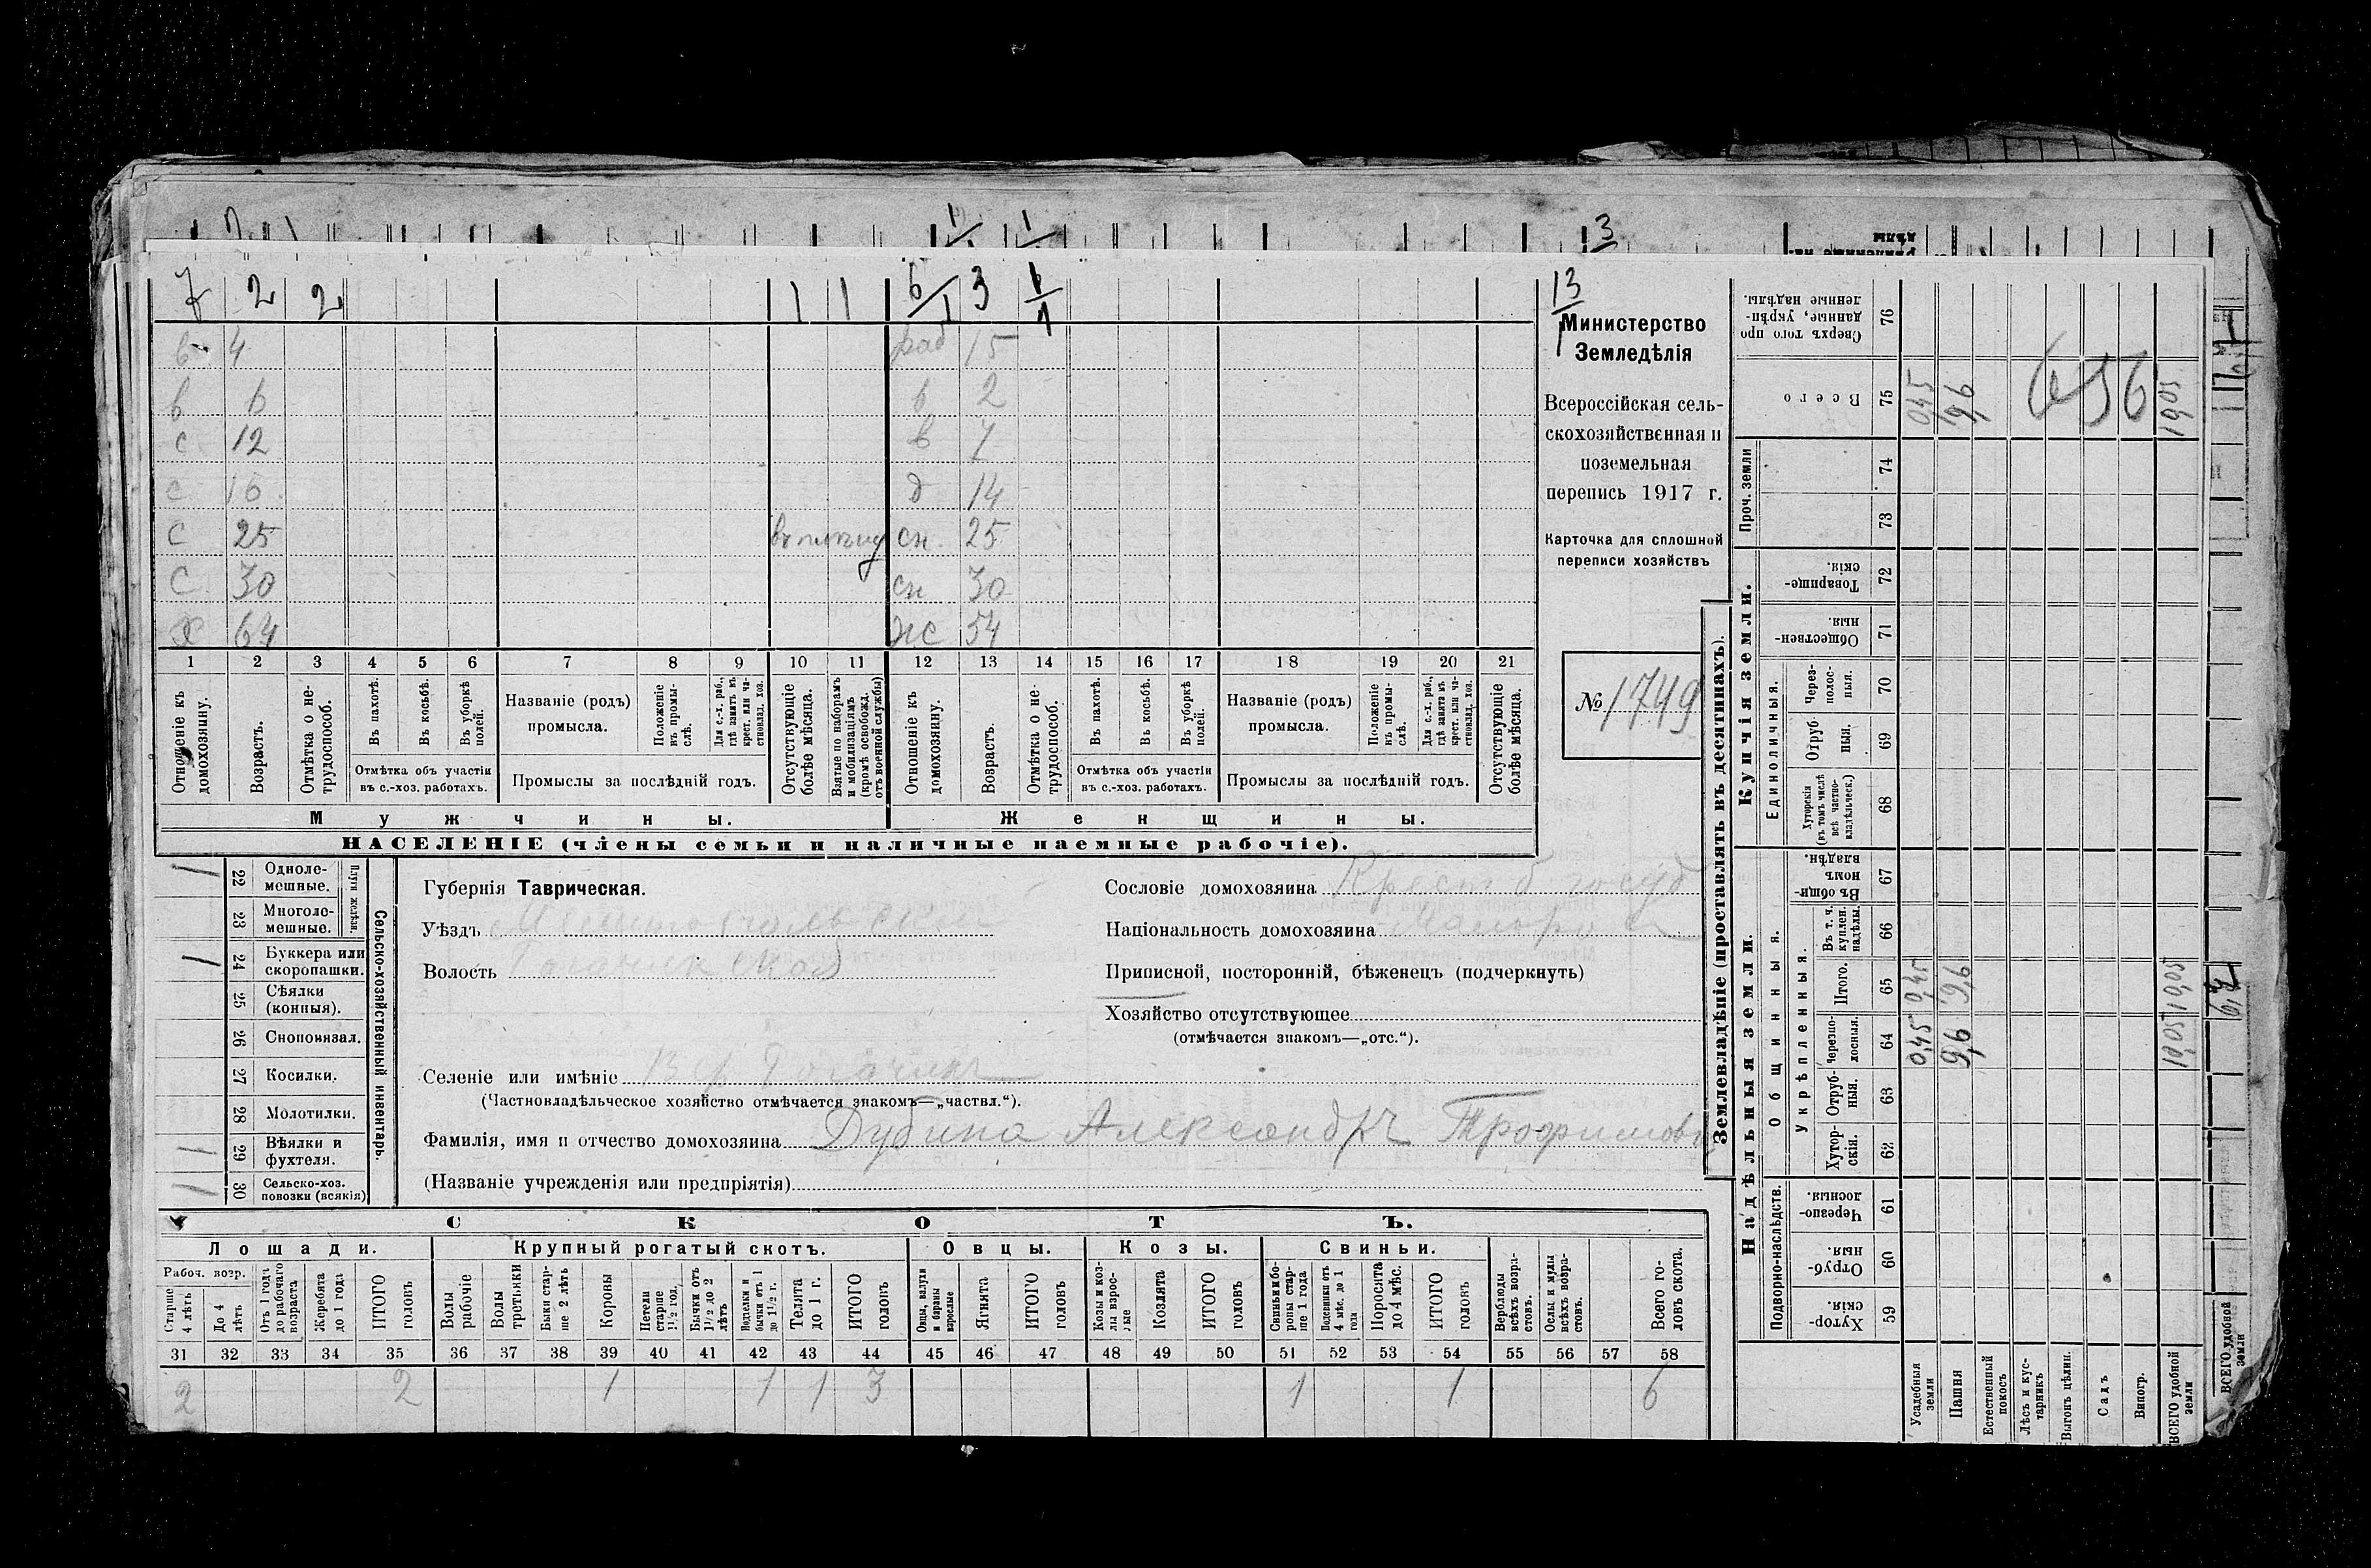 7 2 2 1 1 6/1 3 1/1
в 4 раб 15
в 6 в 2
с 12 в 7
с 16 д 14
с 25 въ плѣну сн 25
с 30 сн 30
х 64 жс 54
1 2 3 4 5 6 7 8 9 10 11 12 13 14 15 16 17 18 19 20 21
Отношеніе къ домохозяину.
Возрастъ.
Отмѣтка о нетрудоспособ.
Въ пахотѣ.
Въ косьбѣ.
Въ уборкѣ полей.
Отмѣтка объ участіи въ с.-хоз. работахъ.
Названіе (родъ) промысла.
Положеніе въ промыслѣ.
Для с.-х. раб., гдѣ занятъ въ крест. или частновлад. хоз.
Промыслы за послѣдній годъ.
Отсутствующіе болѣе мѣсяца.
Взятые по наборамъ и мобилизаціямъ (кромѣ освобожд. отъ военной службы)
Отношеніе къ домохозяину.
Возрастъ.
Отмѣтка о нетрудоспособ.
Въ пахотѣ.
Въ косьбѣ.
Въ уборкѣ полей.
Отмѣтка объ участіи въ с.-хоз. работахъ.
Названіе (родъ) промысла.
Положеніе въ промыслѣ.
Для с.-х. раб., гдѣ занятъ въ крест. или частновлад. хоз.
Промыслы за послѣдній годъ.
Отсутствующіе болѣе мѣсяца.
Мужчины. Женщины.
НАСЕЛЕНІЕ (члены семьи и наличные наемные рабочіе).
13/1
Министерство
Земледѣлія
Всероссійская сель-
скохозяйственная и
поземельная
перепись 1917 г.
Карточка для сплошной
переписи хозяйствъ
№ 1749
1 22 Однолемешные.
23 Многолемешные.
Плуги желѣзн.
1 24 Буккера или скоропашки.
25 Сѣялки (конныя).
26 Сноповязал.
27 Косилки.
28 Молотилки.
1 29 Вѣялки и фухтеля.
1 30 Сельско-хоз. повозки (всякія)
Сельско-хозяйственный инвентарь.
Губернія Таврическая.
Уѣздъ Мелитопольскій
Волость Рогачикская
Сословіе домохозяина Крест б госуд
Національность домохозяина Малорос
Приписной, посторонній, бѣженецъ (подчеркнуть)
Хозяйство отсутствующее
(отмѣчается знакомъ—„отс.“).
Селеніе или имѣніе Рогачикъ
(Частновладѣльческое хозяйство отмѣчается знакомъ—„частвл.“).
Фамилія, имя и отчество домохозяина Дубина Александръ Трофимов
(Названіе учрежденія или предпріятія)
СКОТЪ.
Лошади. Крупный рогатый скотъ. Овцы. Козы. Свиньи.
Рабоч. возр.
Старше 4 лѣтъ
До 4 лѣтъ
Отъ 1 года до рабочаго возраста
Жеребята до 1 года
ИТОГО головъ
Волы рабочіе
Волы третьяки
Быки старше 2 лѣтъ
Коровы
Нетели старше 1½ год.
Бычки отъ 1½ до 2 лѣтъ
Подтелки и бычки отъ 1 до 1½ г.
Телята до 1 г.
ИТОГО головъ
Овцы, валухи и бараны взрослые
Ягнята
ИТОГО головъ
Козы и козлы взрослые
Козлята
ИТОГО головъ
Свиньи и боровы старше 1 года
Подсвинки отъ 4 мѣс. до 1 года
Поросята до 4 мѣс.
ИТОГО головъ
Верблюды всѣхъ возрастовъ.
Ослы и мулы всѣхъ возрастовъ.
Всего головъ скота.
31 32 33 34 35 36 37 38 39 40 41 42 43 44 45 46 47 48 49 50 51 52 53 54 55 56 57 58
2 2 1 1 1 3 1 1 6
Землевладѣніе (проставлять въ десятинахъ).
Купчія земли.
Надѣльныя земли.
Сверхъ того проданные, укрѣпленные надѣлы. 76
Всего 75 0,45 9,6 10,05
656
Проч. земли 74 73
Товарищескія. 72
Общественныя. 71
Единоличныя.
Черезполосныя. 70
Отрубныя. 69
Хуторскія (въ томъ числѣ всѣ частновладѣльческ.) 68
Общинныя.
Въ общинномъ владѣн. 67
Укрѣпленныя.
Въ т. ч. куплен. надѣлы. 66
Итого. 65 0,45 9,6 10,05
Черезполосныя. 64 0,45 9,6 10,05
Отрубныя. 63
Хуторскія. 62
Подворно-наслѣдств.
Черезполосныя. 61
Отрубныя. 60
Хуторскія. 59
Усадебныя земли
Пашня
Естественный покосъ
Лѣсъ и кустарникъ
Выгонъ цѣлин.
Садъ
Виногр.
ВСЕГО удобной земли
ВСЕГО удобной земли